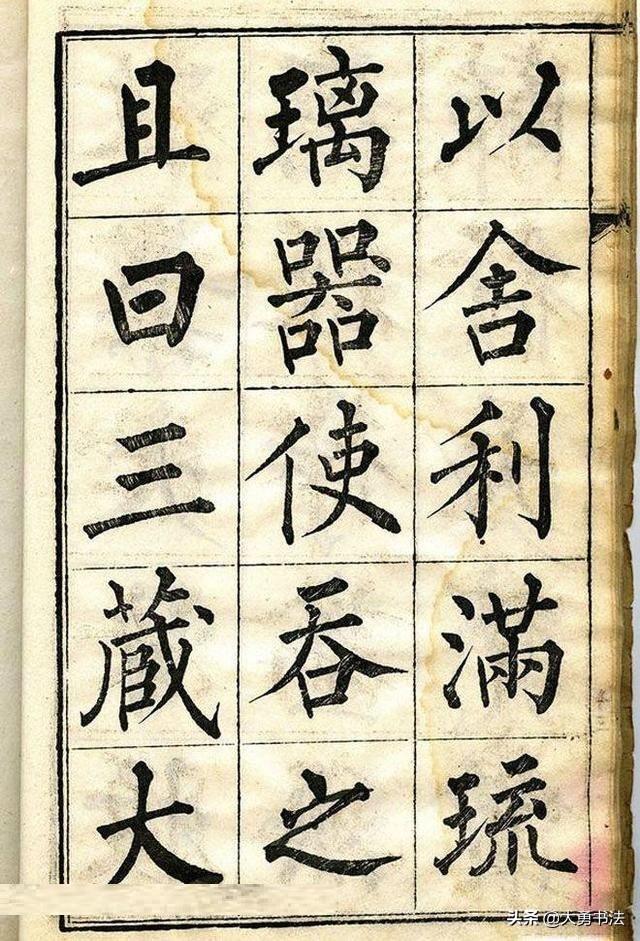 以舍利滿琉
璃器使吞之
且曰三藏大
头条 @大勇书法